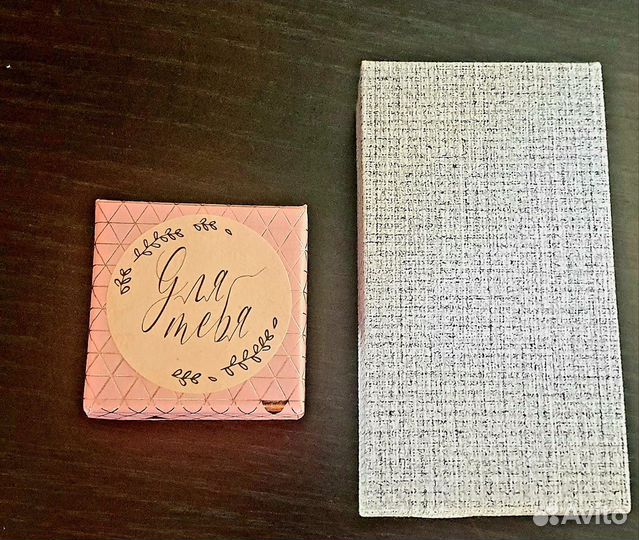 Для
тебя
Avito